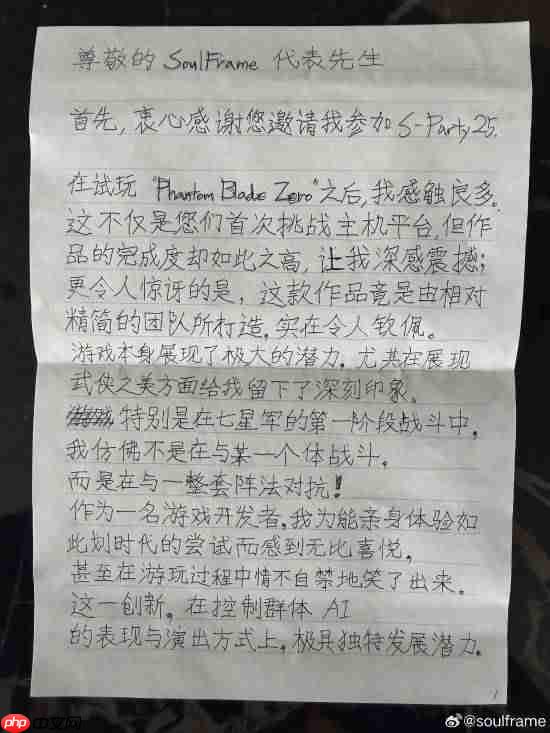 尊敬的 SoulFrame 代表先生
首先,衷心感谢您邀请我参加 S-Party25.
在试玩 "Phantom Blade Zero" 之后,我感触良多。
这不仅是您们首次挑战主机平台,但作
品的完成度却如此之高,让我深感震撼;
更令人惊讶的是,这款作品竟是由相对
精简的团队所打造,实在令人钦佩。
游戏本身展现了极大的潜力,尤其在展现
武侠之美方面给我留下了深刻印象。
特别是在七星军的第一阶段战斗中,
我仿佛不是在与某一个体战斗,
而是在与一整套阵法对抗!
作为一名游戏开发者,我为能亲身体验如
此划时代的尝试而感到无比喜悦,
甚至在游玩过程中情不自禁地笑了出来。
这一创新,在控制群体 AI
的表现与演出方式上,极具独特发展潜力。
1
php 中文网
@soulframe